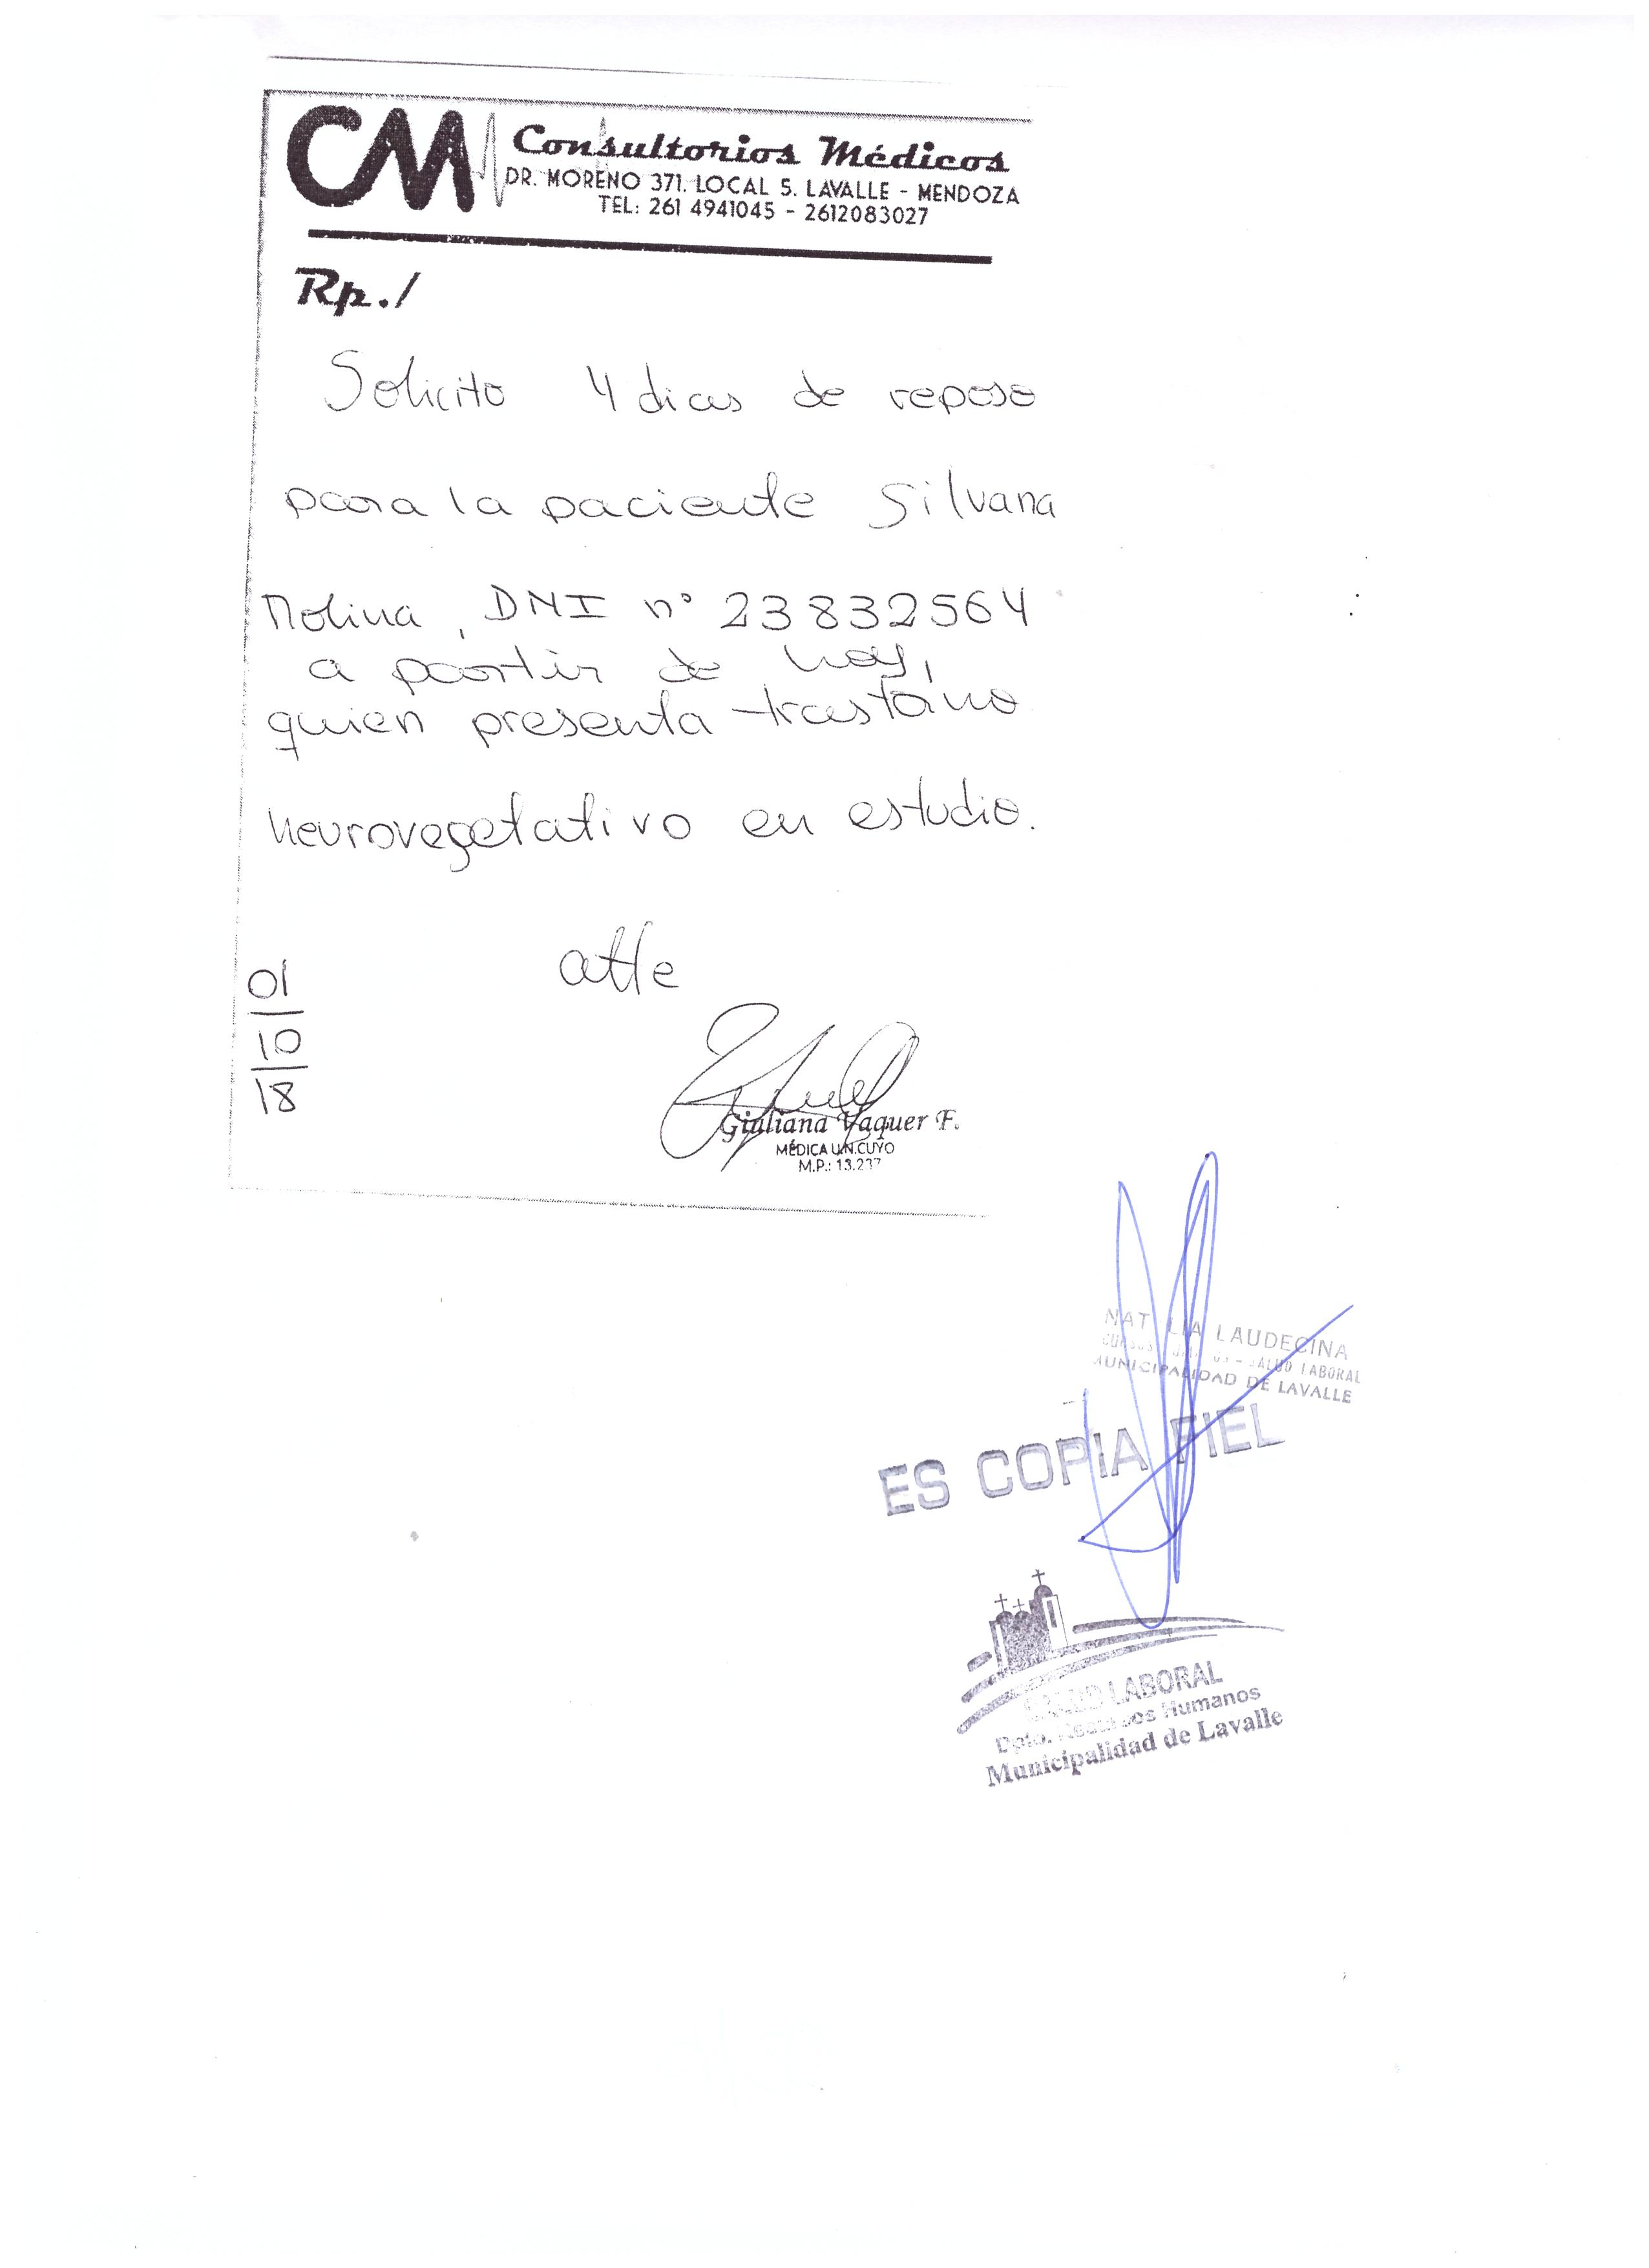 CM Consultorios Médicos
DR. MORENO 371. LOCAL 5. LAVALLE - MENDOZA
TEL: 261 4941045 - 2612083027
Rp./
Solicito 4 dias de reposo
para la paciente Silvana
Molina, DNI n° 23832564
a partir de hoy,
quien presenta
neurovegetativo en estudio.
atte
01
10
18
Giuliana Vaquer F.
MÉDICA U.N.CUYO
M.P.: 13.237
NATALIA LAUDECINA
SALUD LABORAL
MUNICIPALIDAD DE LAVALLE
ES COPIA FIEL
SALUD LABORAL
Dpto. Humanos
Municipalidad de Lavalle